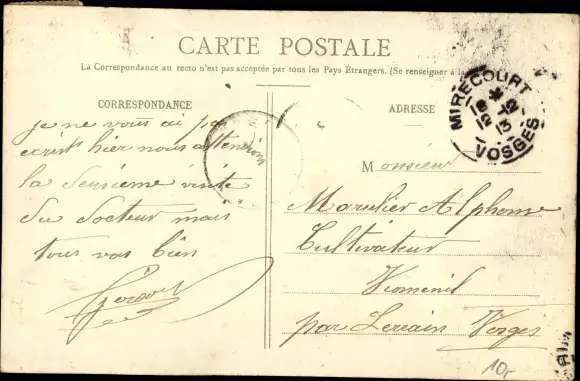 CARTE POSTALE
La Correspondance au recto n'est pas acceptée par tous les Pays Étrangers. (Se renseigner à la
CORRESPONDANCE
ADRESSE
MIRECOURT
VOSGES
je ne vous ai pas
ecrit hier nous attendions
la deusieme visite
du docteur mais
tous vas bien
Monsieur
Alphonse
Cultivateur
Viomenil
par Lerrain Vosges
10